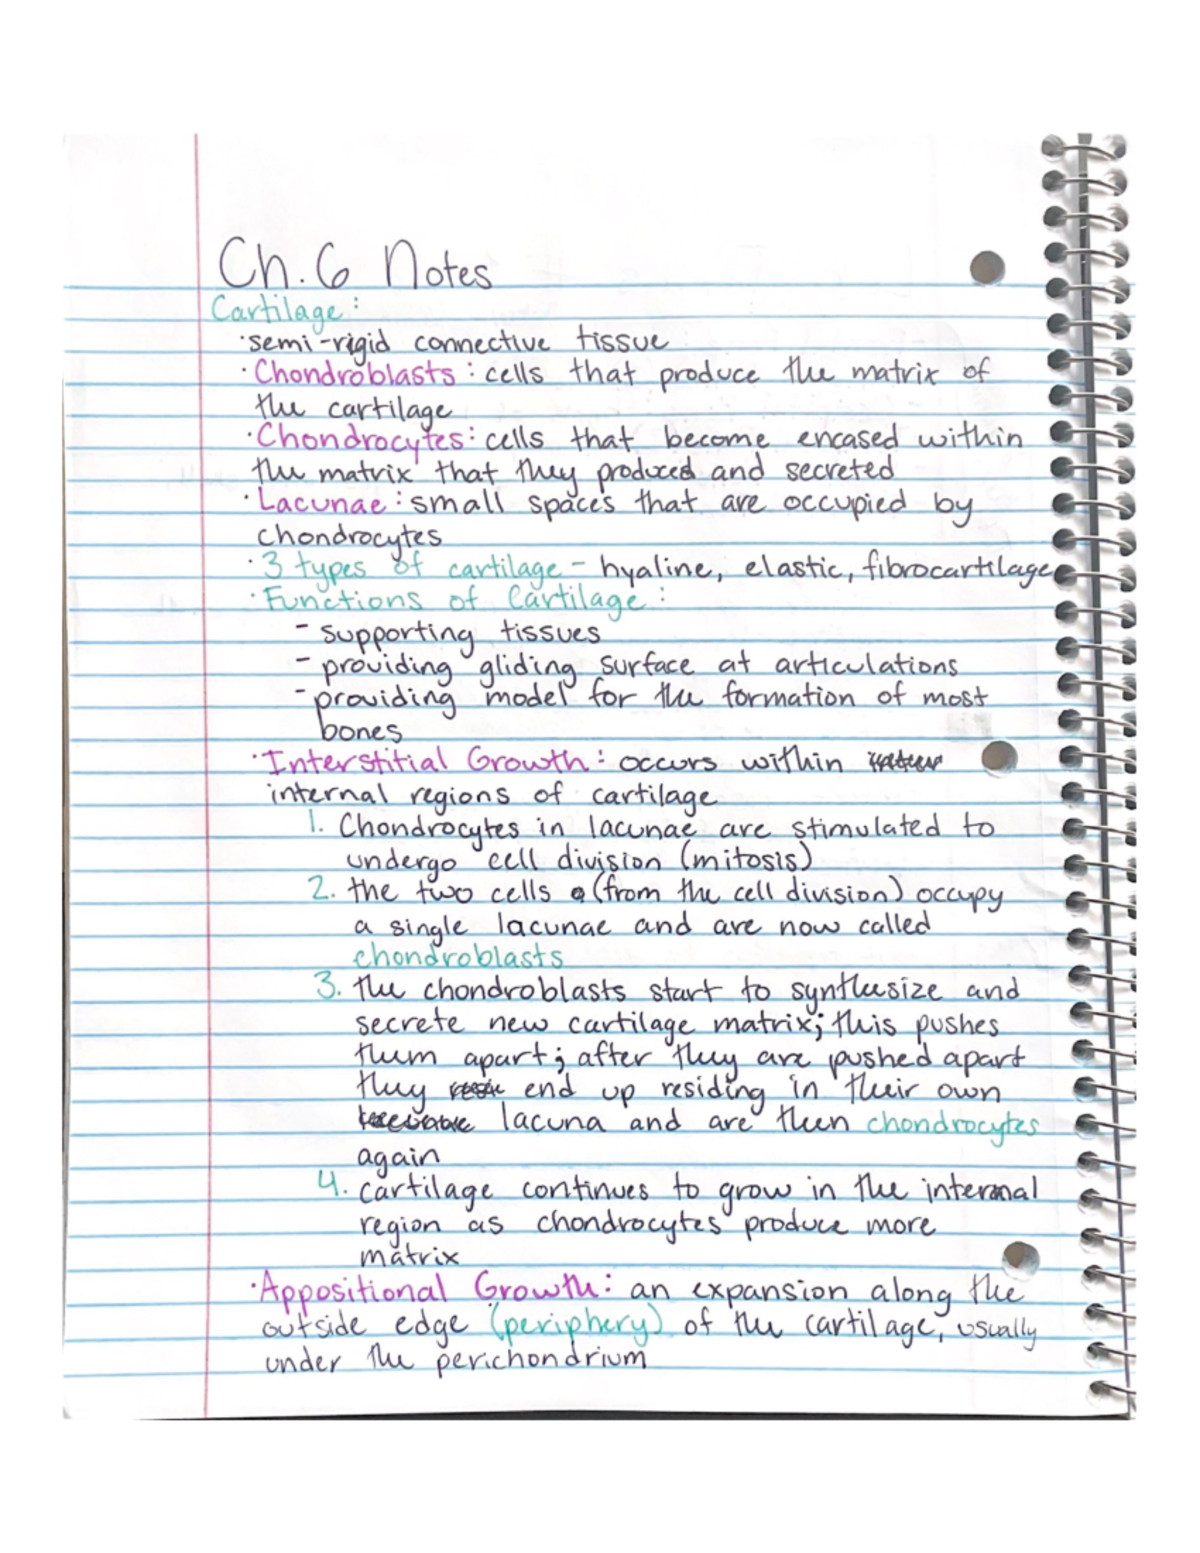 Ch. 6 Notes
Cartilage:
·semi-rigid connective tissue
·Chondroblasts: cells that produce the matrix of
the cartilage
·Chondrocytes: cells that become encased within
the matrix that they produced and secreted
·Lacunae: small spaces that are occupied by
chondrocytes
·3 types of cartilage - hyaline, elastic, fibrocartilage
·Functions of Cartilage:
- supporting tissues
- providing gliding surface at articulations
- providing model for the formation of most
bones
·Interstitial Growth: occurs within
internal regions of cartilage
1. Chondrocytes in lacunae are stimulated to
undergo cell division (mitosis)
2. the two cells (from the cell division) occupy
a single lacunae and are now called
chondroblasts
3. the chondroblasts start to synthesize and
secrete new cartilage matrix; this pushes
them apart; after they are pushed apart
they end up residing in their own
lacuna and are then chondrocytes
again
4. cartilage continues to grow in the internal
region as chondrocytes produce more
matrix
·Appositional Growth: an expansion along the
outside edge (periphery) of the cartilage, usually
under the perichondrium